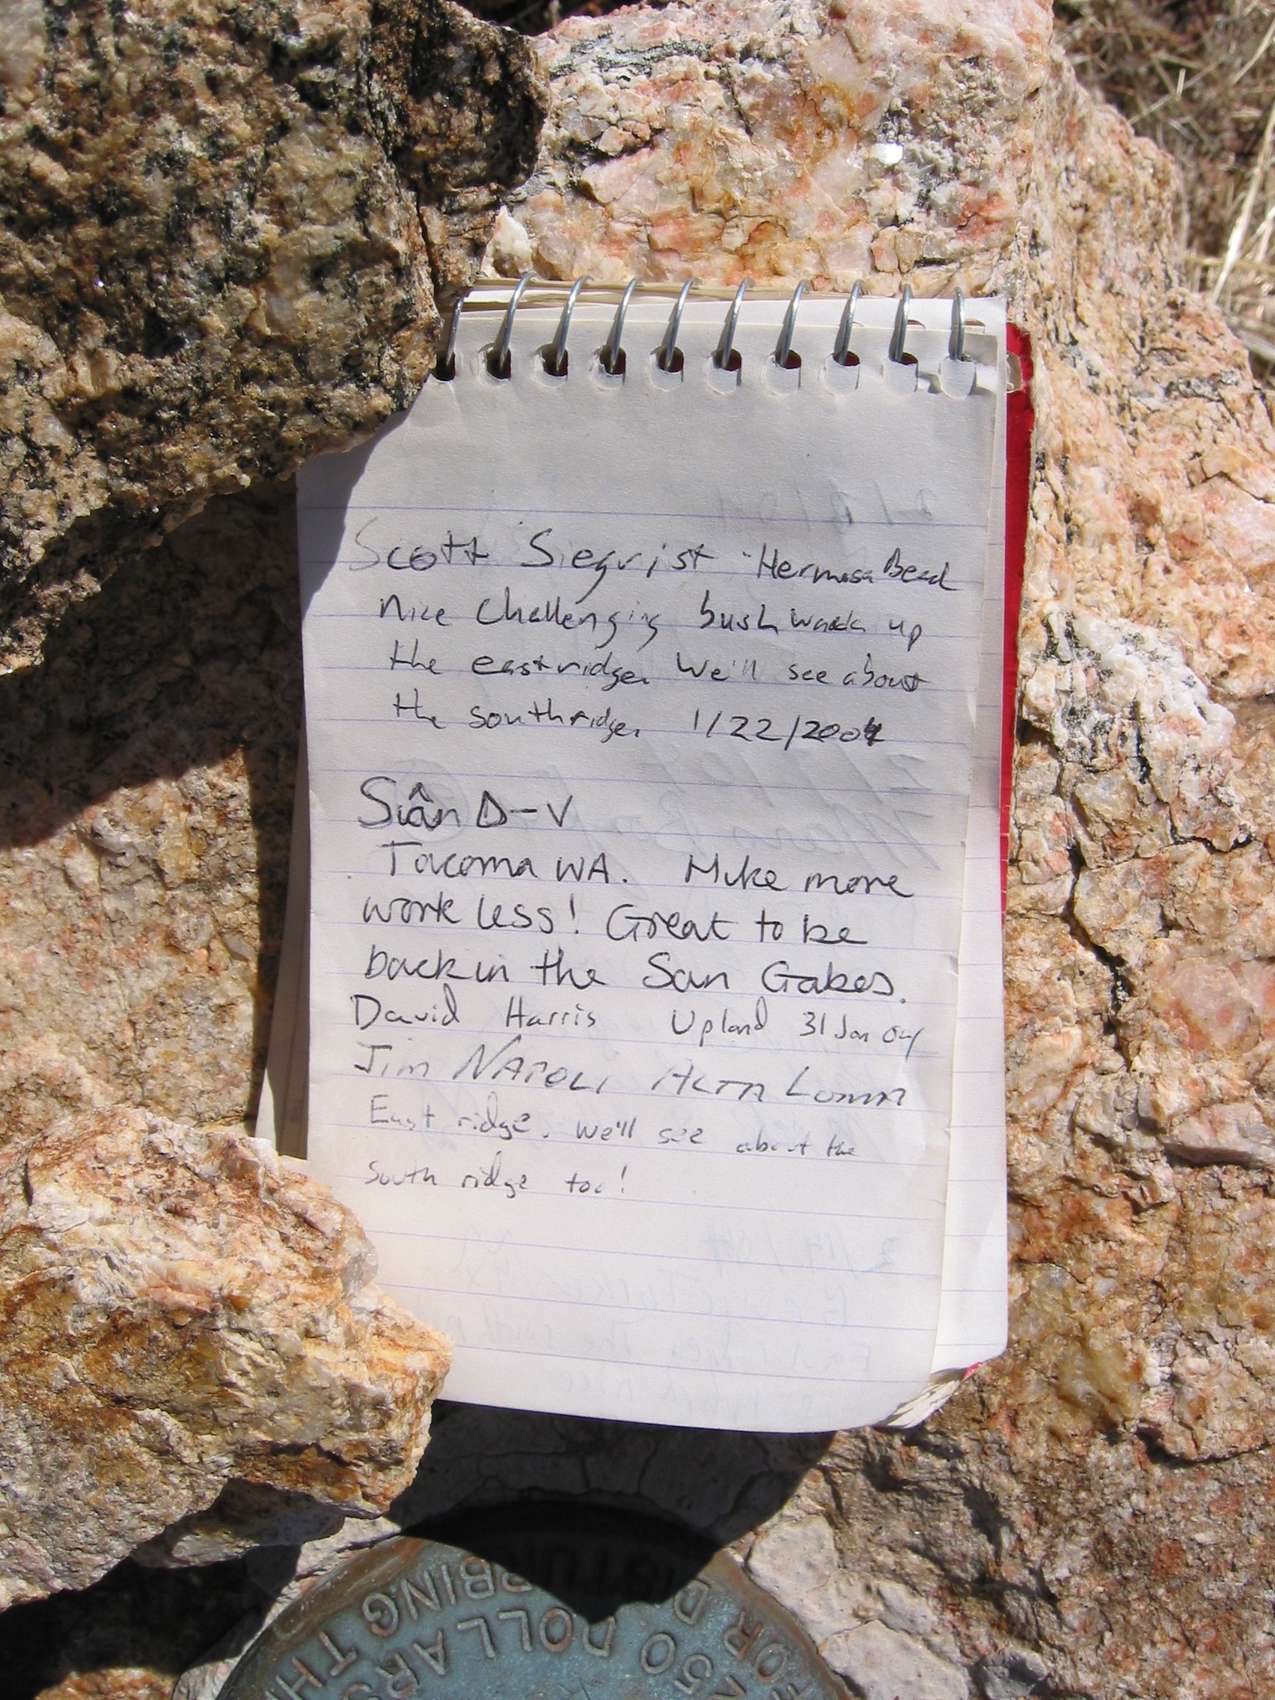 Scott Siegrist Hermosa Beach
Nice challenging bushwack up
the east ridge. We'll see about
the south ridge. 1/22/2004
Siân D-V
Tacoma WA. Hike more
work less! Great to be
back in the San Gabes.
David Harris Upland 31 Jan 04
Jim NAPOLI ALTA LOMA
East ridge. We'll see about the
south ridge too!
$250 DOLLARS
FOR DISTURBING THI